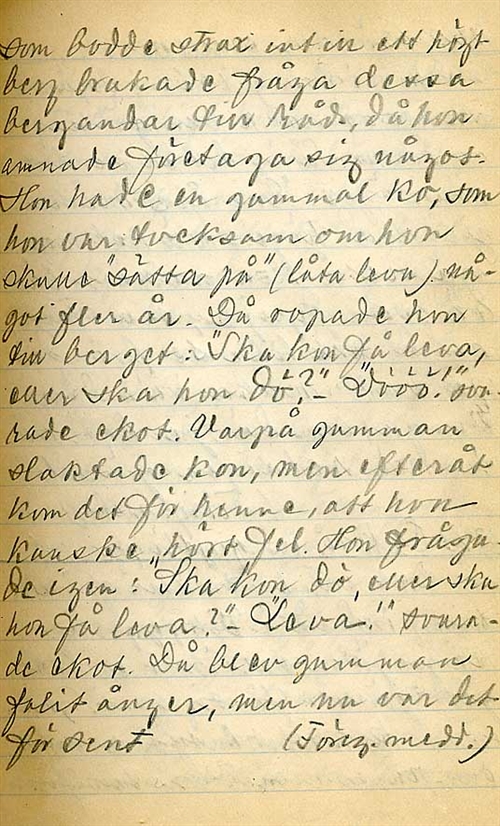 som bodde strax intin ett högt
berg brukade fråga dessa
bergandar till råds, då hon
ämnade företaga sig något.
Hon hade en gammal ko, som
hon var tveksam om hon
skulle "sätta på" (låta leva) nå-
got fler år. Då ropade hon
till berget: "Ska kon få leva,
eller ska hon dö?" – "Dööö!" sva-
rade ekot. Varpå gumman
slaktade kon, men efteråt
kom det för henne, att hon
kanske hört fel. Hon fråga-
de igen: "Ska kon dö, eller ska
hon få leva?" – "Leva!" svara-
de ekot. Då blev gumman
falit ånger, men nu var det
för sent (Föreg. medd.)